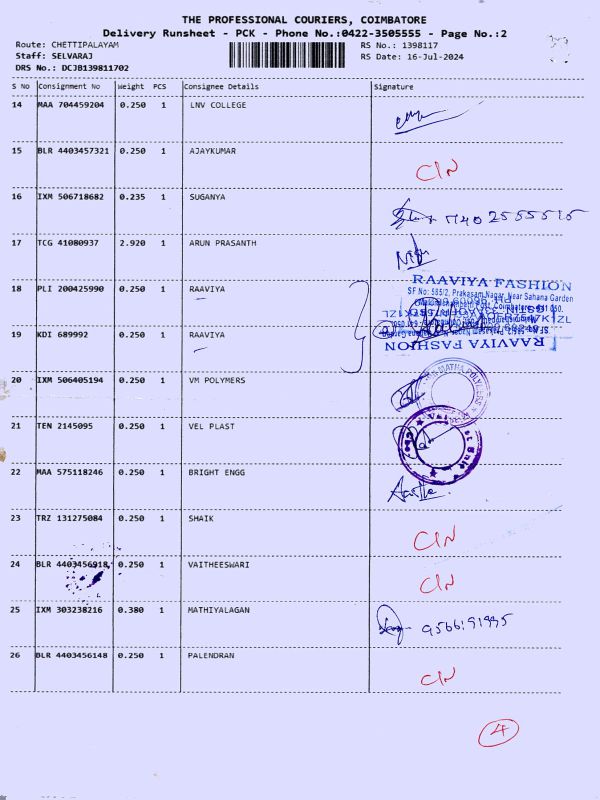 THE PROFESSIONAL COURIERS, COIMBATORE
Delivery Runsheet - PCK - Phone No.:0422-3505555 - Page No.:2
Route: CHETTIPALAYAM RS No.: 1398117
Staff: SELVARAJ RS Date: 16-Jul-2024
DRS No.: DCJB139811702
S No Consignment No Weight PCS Consignee Details Signature
14 MAA 704459204 0.250 1 LNV COLLEGE
15 BLR 4403457321 0.250 1 AJAYKUMAR CIN
16 IXM 506718682 0.235 1 SUGANYA
17 TCG 41080937 2.920 1 ARUN PRASANTH
RAAVIYA FASHION
18 PLI 200425990 0.250 1 RAAVIYA
SF No: 585/2, Prakasam Nagar, Near Sahana Garden
19 KDI 689992 0.250 1 RAAVIYA
RAAVIYA FASHION
20 IXM 506405194 0.250 1 VM POLYMERS
MATHA POLYMERS
21 TEN 2145095 0.250 1 VEL PLAST
22 MAA 575118246 0.250 1 BRIGHT ENGG
23 TRZ 131275084 0.250 1 SHAIK CIN
24 BLR 4403456918 0.250 1 VAITHEESWARI CIN
25 IXM 303238216 0.380 1 MATHIYALAGAN
26 BLR 4403456148 0.250 1 PALENDRAN CIN
4